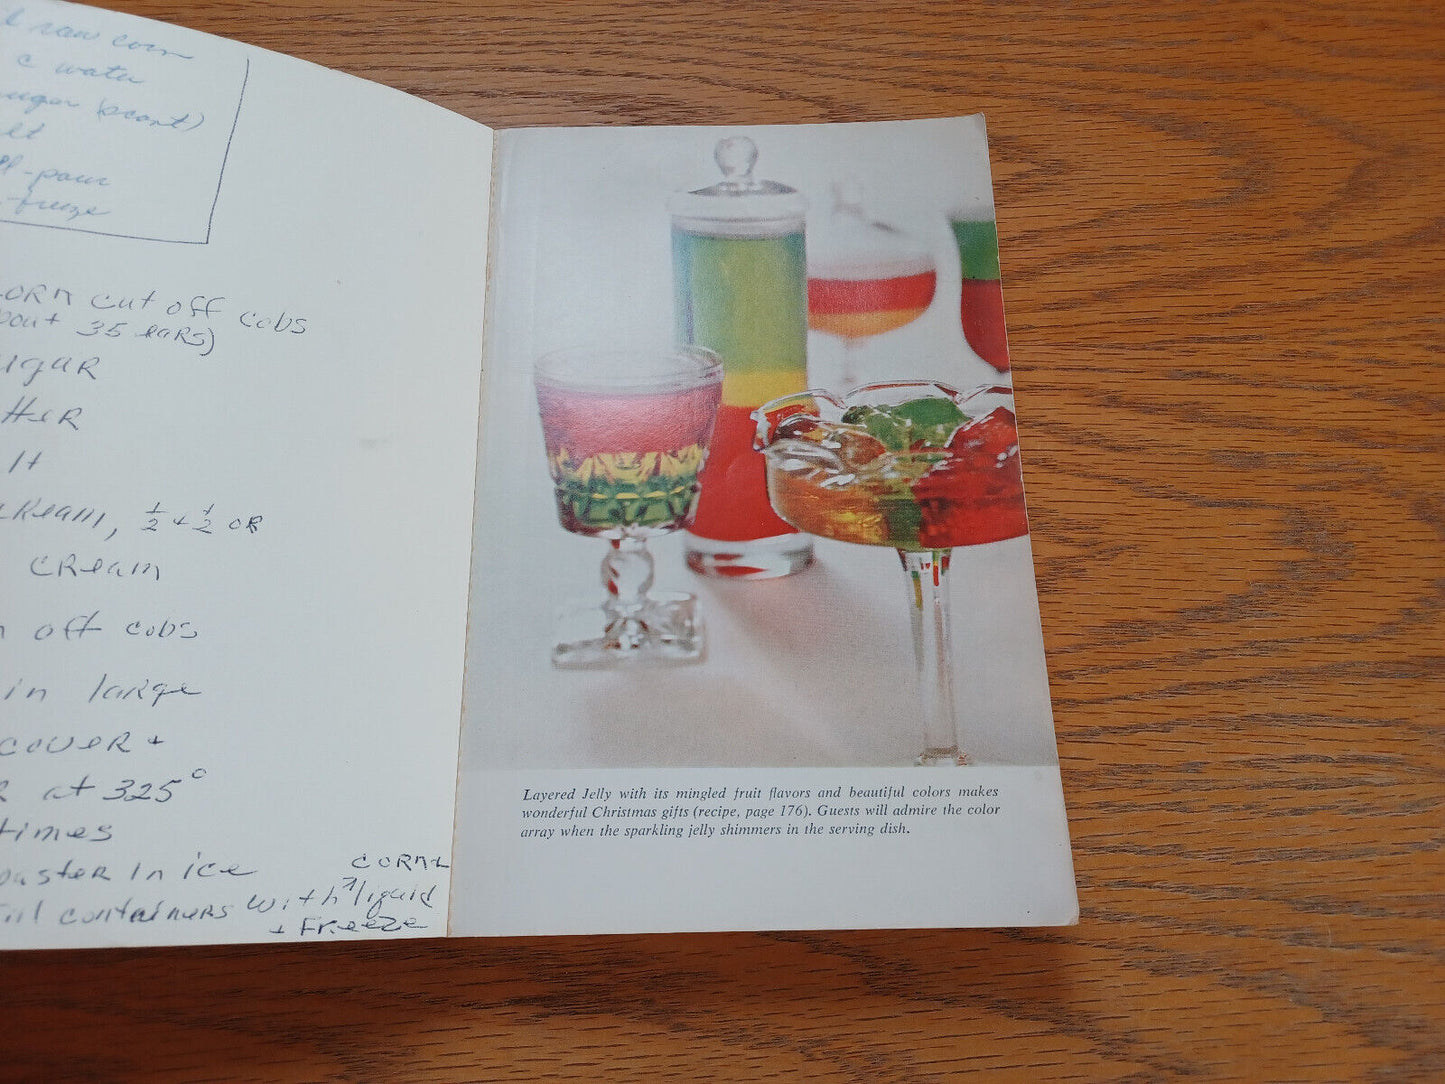 raw corn
c water
(scant)
-pour
-freeze
cut off cobs
35 ears)
cream, ½ + ½ or
cream
off cobs
in large
cover +
at 325°
times
in ice
corn +
containers with liquid
+ Freeze
Layered Jelly with its mingled fruit flavors and beautiful colors makes
wonderful Christmas gifts (recipe, page 176). Guests will admire the color
array when the sparkling jelly shimmers in the serving dish.